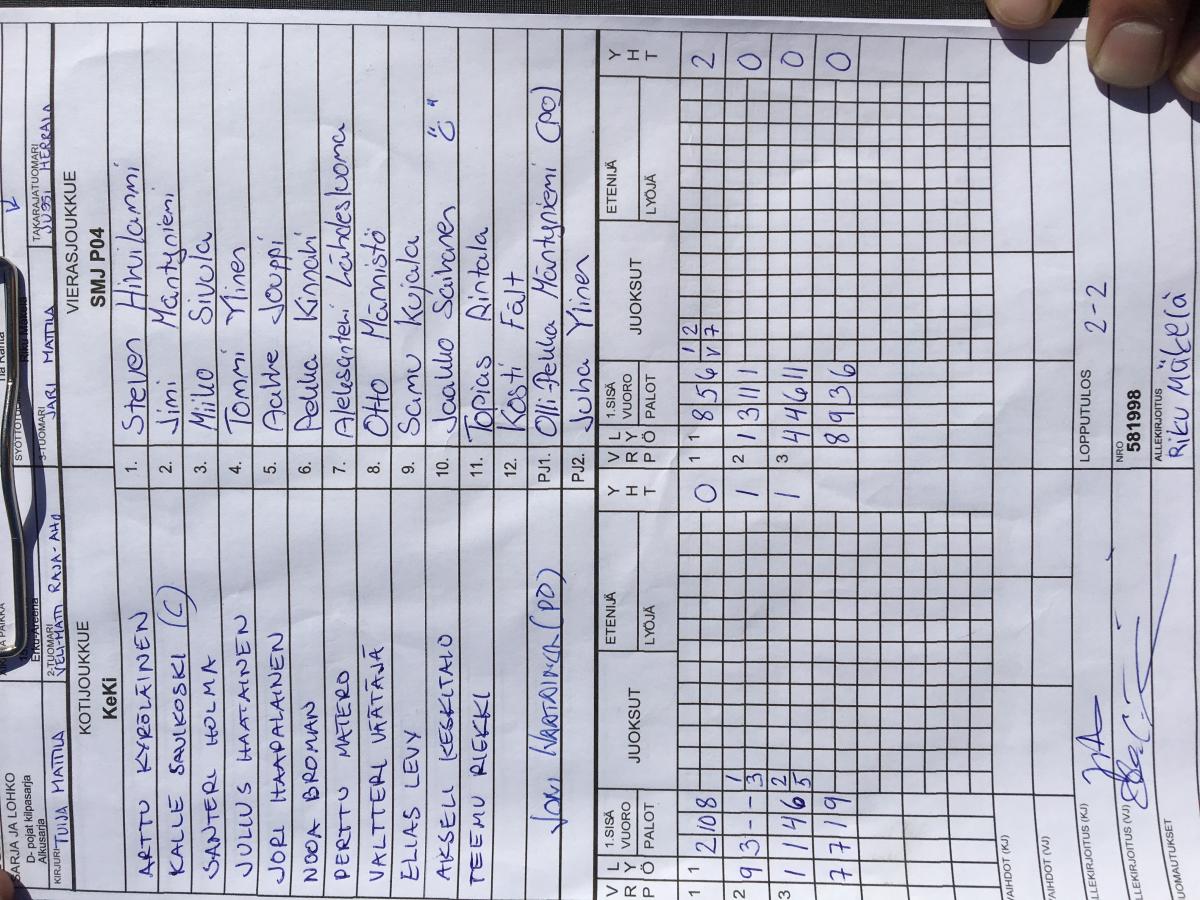 SARJA JA LOHKO
D- pojat kilpasarja
Alkusarja
Riku Mäkelä
KIRJURI TUIJA MATTILA
2-TUOMARI VELI-MATTI RAJA-AHO
3-TUOMARI JARI MATTILA
TAKARAJATUOMARI JUSSI HERRALA
KOTIJOUKKUE VIERASJOUKKUE
KeKi SMJ P04
ARTTU KYRÖLÄINEN 1. Steven Hihnilammi
KALLE SAUKOSKI (C) 2. Jimi Mäntyniemi
SANTERI HOLMA 3. Miiko Sivula
JULIUS HAATAINEN 4. Tommi Ylinen
JORI HAAPALAINEN 5. Aahve Jouppi
NOOA BROMAN 6. Pekka Kinnari
PERTTU MATERO 7. Aleksanteri Lähdesluoma
VALTTERI VÄÄTÄJÄ 8. Otto Männistö
ELIAS LEVY 9. Samu Kujala
AKSELI KESKITALO 10. Jaakko Saihanen "C"
TEEMU RIEKKI 11. Topias Rintala
12. Kosti Fält
PJ1. Olli-Pekka Mäntyniemi (PO)
PJ2. Juha Ylinen
V R P L Y Ö 1.SISÄ VUORO PALOT JUOKSUT ETENIJÄ LYÖJÄ Y H T V R P L Y Ö 1.SISÄ VUORO PALOT JUOKSUT ETENIJÄ LYÖJÄ Y H T
1 1 2 10 8 0 1 1 8 5 6 V 1 7 2 2
2 9 3 - - 3 1 1 2 1 3 11 1 0
3 1 1 4 6 5 2 1 3 4 4 6 11 0
7 7 1 9 8 9 3 6 0
VAIHDOT (KJ)
VAIHDOT (VJ)
LOPPUTULOS 2-2
ALLEKIRJOITUS (KJ)
ALLEKIRJOITUS (VJ)
NRO
581998
HUOMAUTUKSET
ALLEKIRJOITUS
Riku Mäkelä